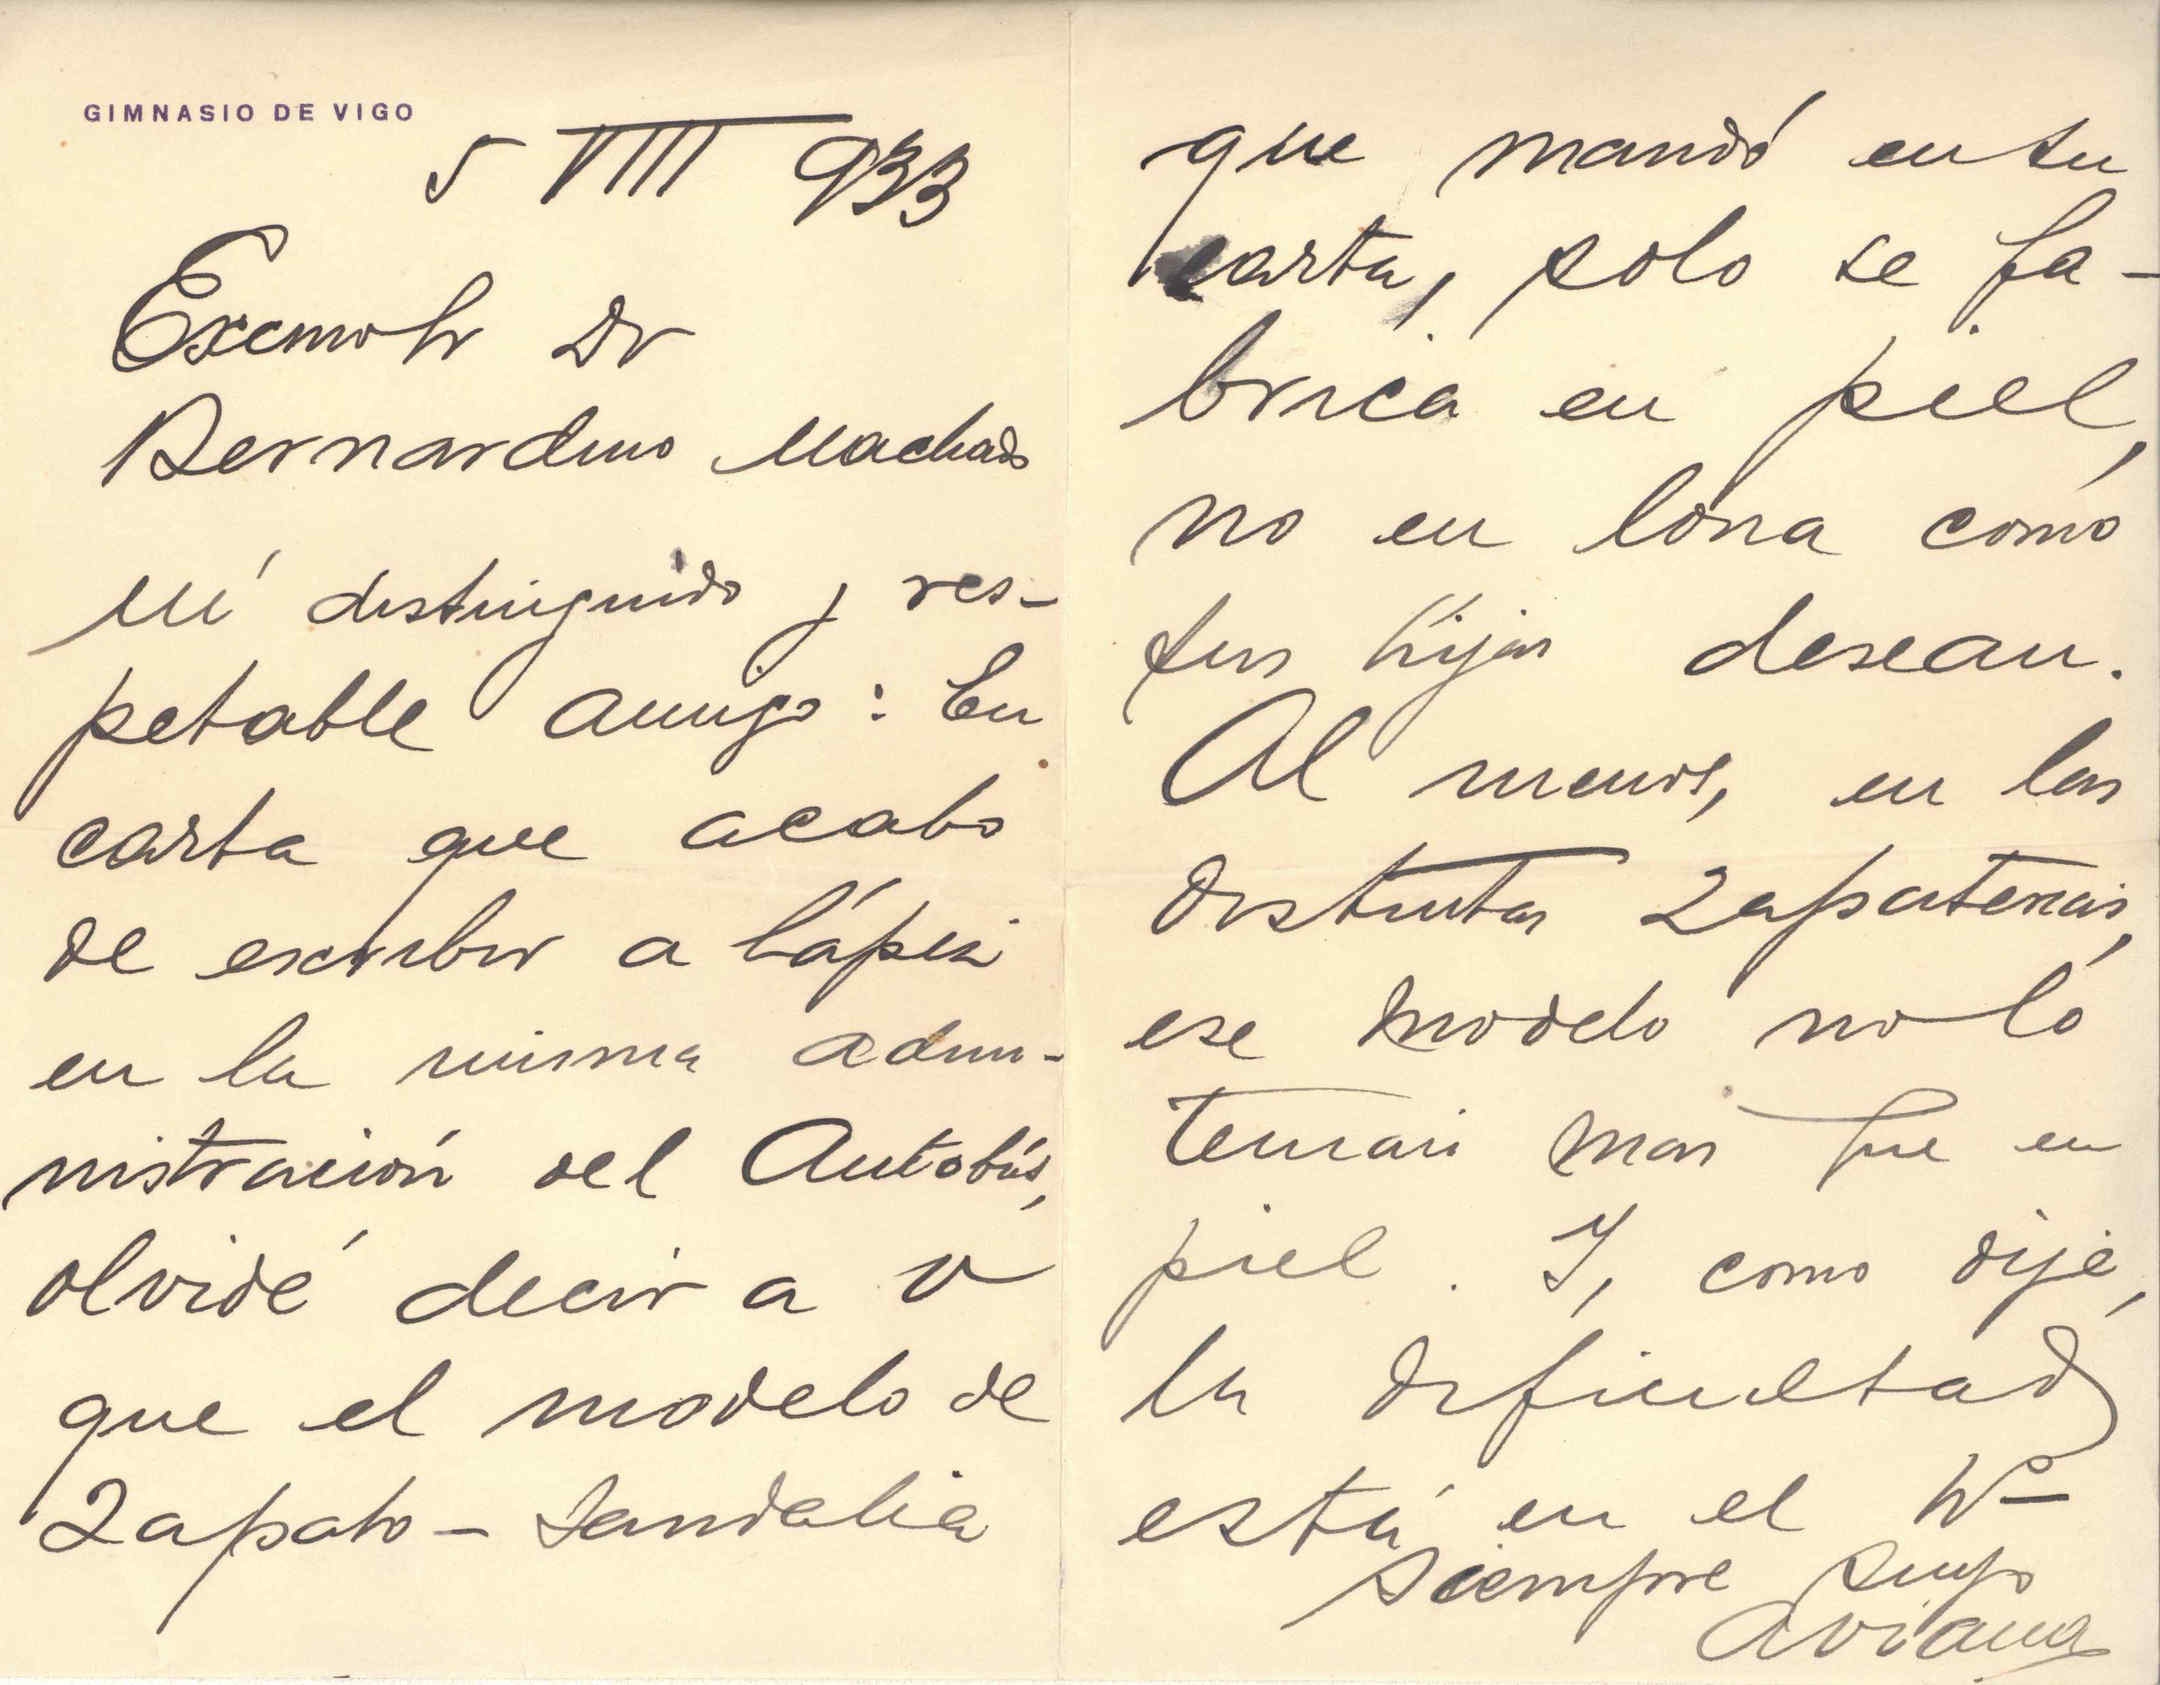 GIMNASIO DE VIGO
5 VIII 933
Excmo Sr Dr
Bernardino Machado
Mi distinguido y res-
petable amigo: En
carta que acabo
de escribir a lápiz
en la misma admi-
nistración del Autobús,
olvidé decir a V
que el modelo de
Zapato - Sandalia
que mandó en su
carta, solo se fa-
brica en piel,
no en lona como
sus hijas desean.
Al menos, en las
distintas zapaterias,
ese modelo no lo
tenian mas que en
piel. Y, como dije,
la dificultad
está en el Nº
Siempre suyo